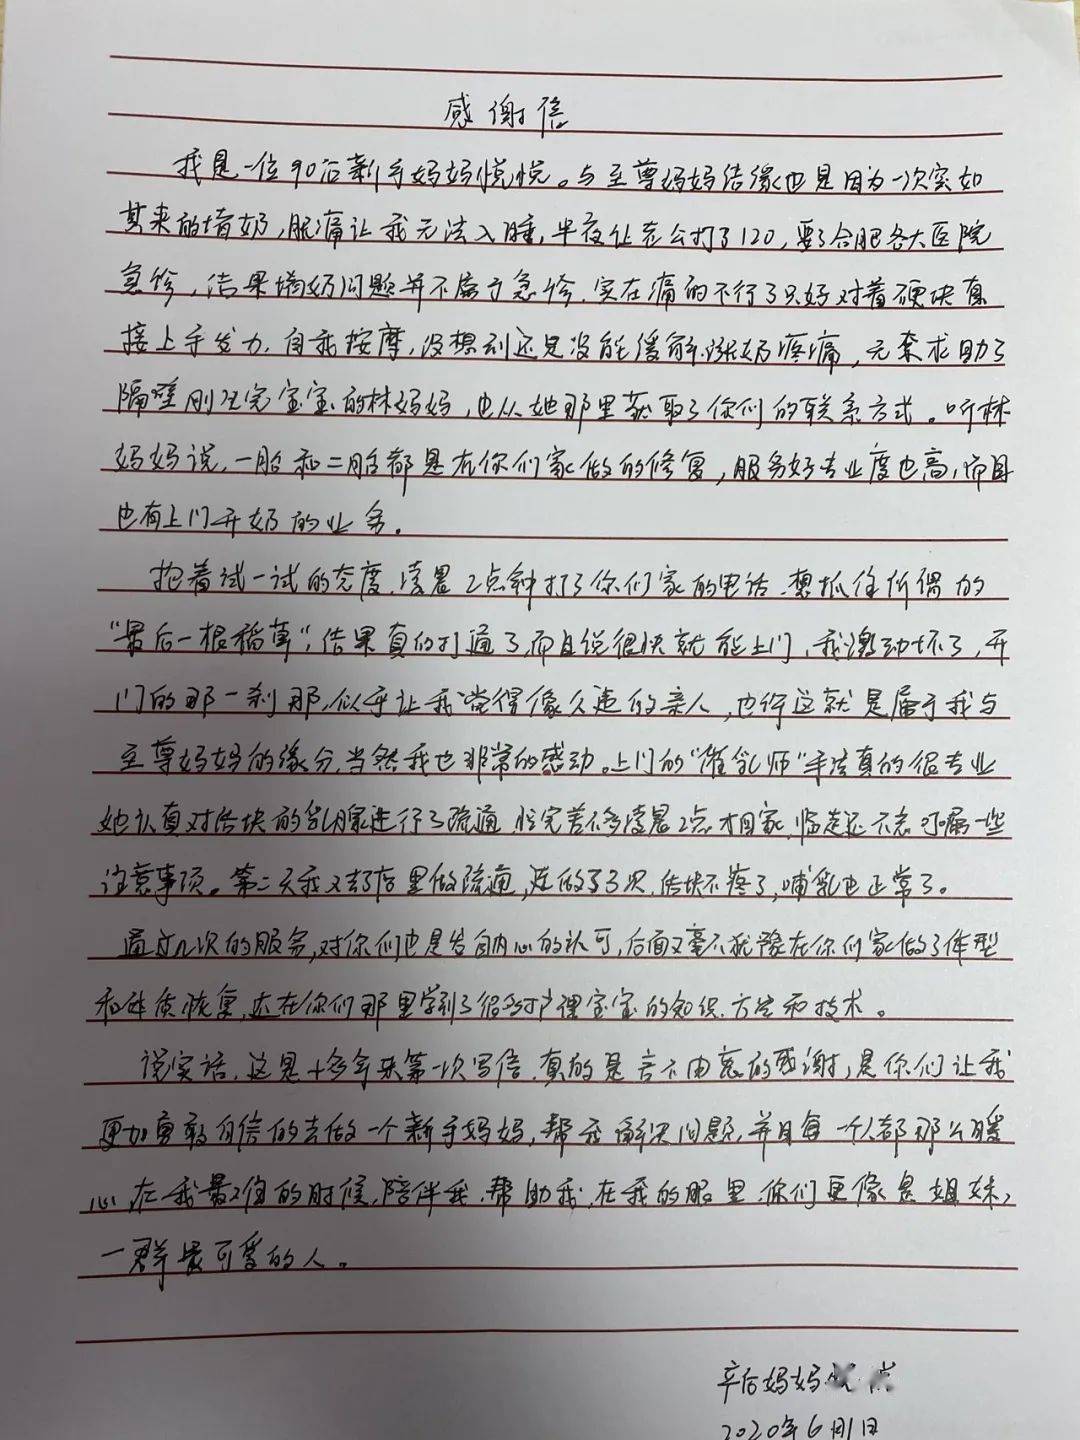 感谢信
我是一位90后新手妈妈悦悦。与至尊妈妈结缘也是因为一次突如
其来的堵奶,胀痛让我无法入睡,半夜让老公打了120,要了合肥各大医院
急诊,结果堵奶问题并不属于急诊.实在痛的不行了只好对着硬块直
接上手发力,自我按摩,没想到还是没能缓解涨奶疼痛,无奈求助了
隔壁刚生完宝宝的林妈妈,也从她那里获取了你们的联系方式。听林
妈妈说,一胎和二胎都是在你们家做的修复,服务好专业度也高,而且
也有上门开奶的业务。
抱着试一试的态度.凌晨2点钟打了你们家的电话.想抓住所谓的
“最后一根稻草”,结果真的打通了,而且说很快就能上门,我激动坏了,开
门的那一刹那,似乎让我觉得像久违的亲人,也许这就是属于我与
至尊妈妈的缘分.当然我也非常的感动。上门的“催乳师”手法真的很专业
她认真对结块的乳腺进行了疏通 忙完差不多凌晨2点才回家.临走还不忘叮嘱一些
注意事项。第二天我又去了店里做疏通,连做了3次.结块不疼了,哺乳也正常了。
通过几次的服务,对你们也是发自内心的认可,后面又毫不犹豫在你们家做了体型
和体质恢复,还在你们那里学到了很多护理宝宝的知识.方法和技术。
说实话,这是十多年来第一次写信.真的是言不由衷的感谢,是你们让我
更加勇敢自信的去做一个新手妈妈,帮我解决问题,并且每一个人都那么暖
心.在我最无助的时候.陪伴我.帮助我.在我的眼里.你们更像是姐妹,
一群最可爱的人。
辛后妈妈
2020年6月1日